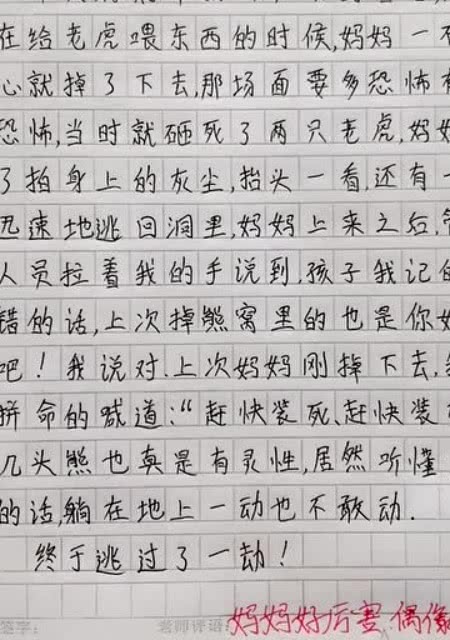 在给老虎喂东西的时候,妈妈一
心就掉了下去,那场面要多恐怖有
恐怖,当时就砸死了两只老虎,妈妈
了拍身上的灰尘,抬头一看,还有一
迅速地逃回洞里,妈妈上来之后,管
人员拉着我的手说到,孩子我记的
错的话,上次掉熊窝里的也是你妈
吧!我说对.上次妈妈刚掉下去,我
拼命的喊道:“赶快装死、赶快装
几头熊也真是有灵性,居然听懂
的话,躺在地上一动也不敢动.
终于逃过了一劫!
签字: 老师评语: 妈妈好厉害.偶像